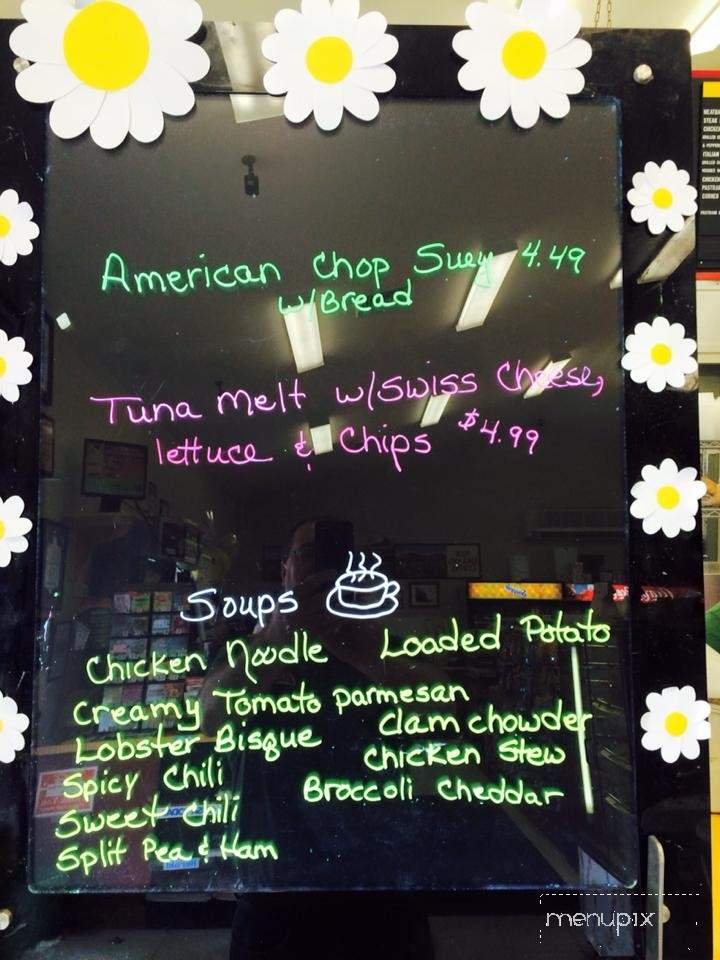 American Chop Suey 4.49
w/Bread
Tuna melt w/swiss Cheese,
lettuce & Chips $4.99
Soups
Chicken Noodle Loaded Potato
Creamy Tomato parmesan
Lobster Bisque Clam chowder
Spicy Chili Chicken Stew
Sweet Chili Broccoli Cheddar
Split Pea & Ham
menupix